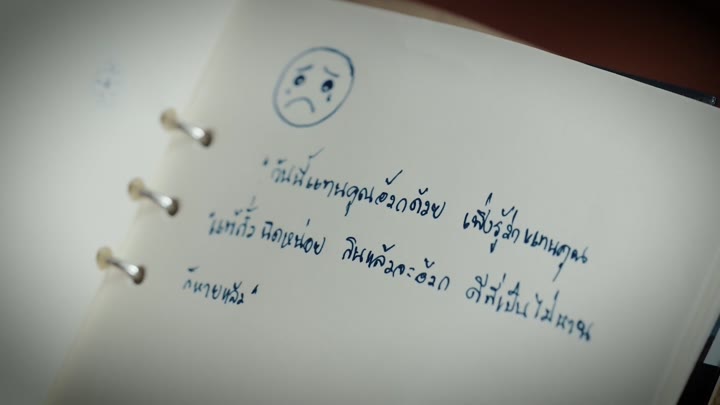 "วันนี้แทนคุณอ้วกด้วย เพิ่งรู้ว่าแทนคุณ
แพ้ถั่วนิดหน่อย กินแล้วจะอ้วก ดีที่เป็นไม่นาน
ก็หายแล้ว"